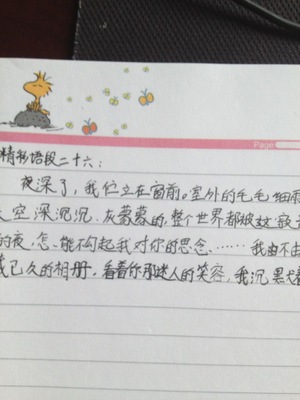 Page
精彩语段二十六：
夜深了，我伫立在窗前。室外的毛毛细雨
空深沉沉.灰蒙蒙的,整个世界都被
的夜，怎能不勾起我对你的思念……我由不由
已久的相册，看着你那迷人的笑容，我沉默